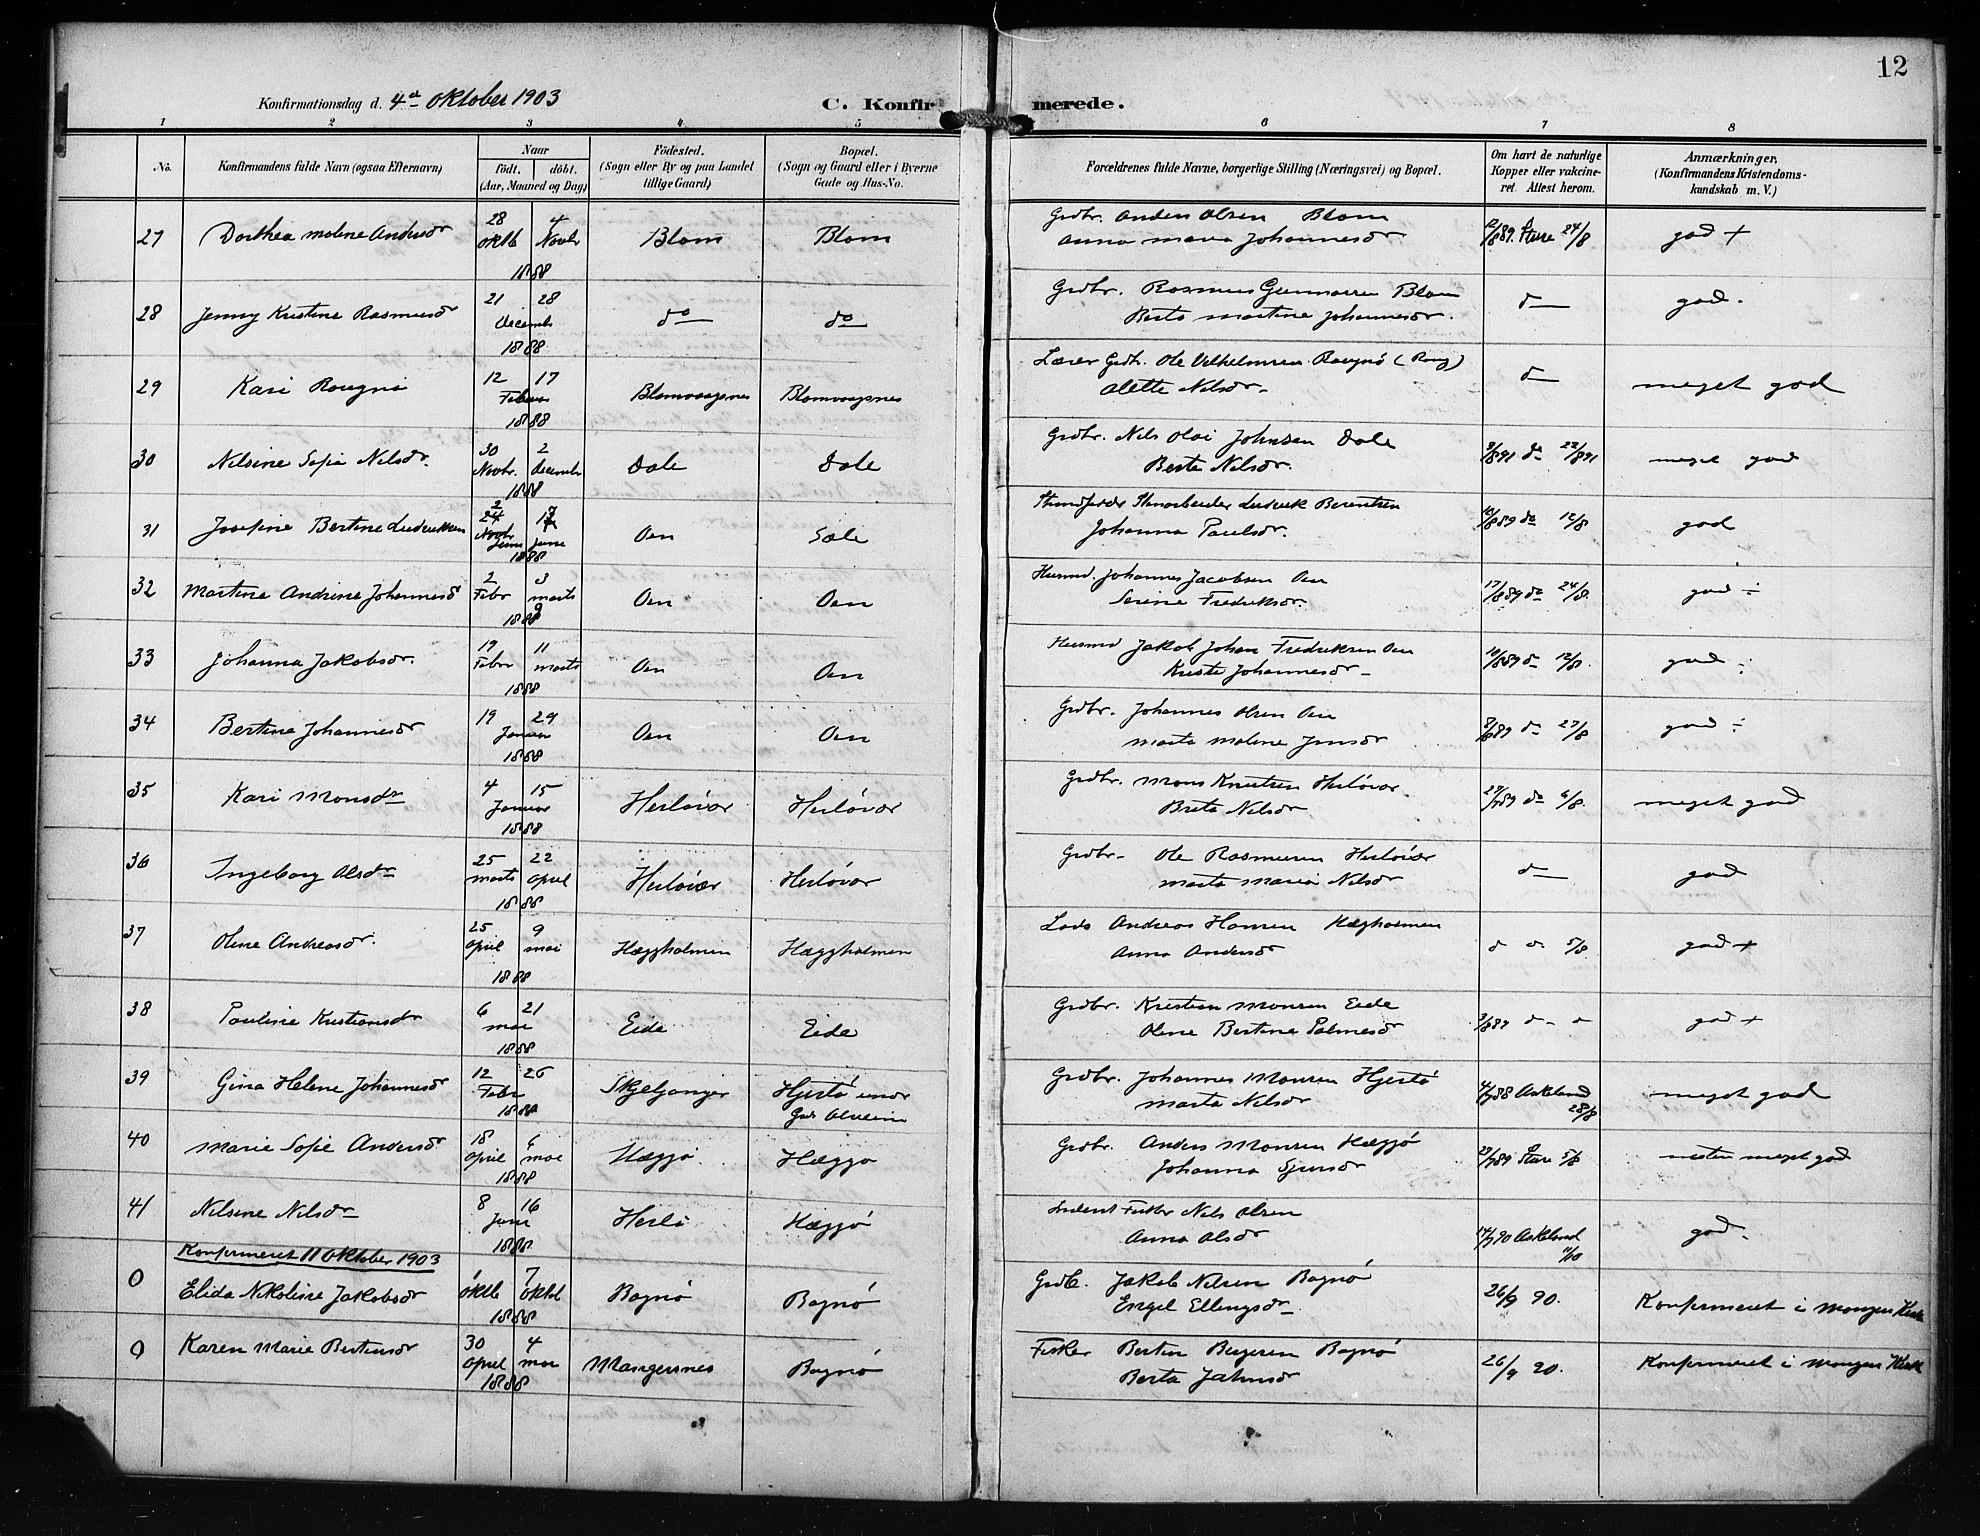 12
Konfirmationsdag d. 4de oktober 1903
C. Konfirmerede.
1 2 3 4 5 6 7 8
No. Konfirmandens fulde Navn (ogsaa Efternavn) Naar Födt. döbt. (Aar, Maaned og Dag) Födested. (Sogn eller By og paa Landet tillige Gaard) Bopæl. (Sogn og Gaard eller i Byerne Gade og Hus-No. Forældrenes fulde Navne, borgerlige Stilling (Næringsvei) og Bopæl. Om havt de naturlige Kopper eller vakcineret Attest herom. Anmærkninger. (Konfirmandens Kristendomskundskab m. V.)
27 Dorthea Malene Andersdr 28 oktb 4 Novbr 1888 Blom Blom Grdbr. Anders Olsen Blom
Anna Maria Johannesdr Sture 24/8 god +
28 Jenny Kristine Rasmusdr 21 28 Decemb 1888 do do Grdbr. Rasmus Gunnarsen Blom
Berta Martine Johannesdr. d— god.
29 Kari Rougnø 12 17 Februar 1888 Blomvaagnes Blomvaagnes Lærer Grdbr. Ole Vilhelmsen Rougnø (Roug)
Alette Nilsdr d— meget god
30 Nilsine Sofie Nilsdr. 30 Novbr. 2 Decemb 1888 Dale Dale Grdbr. Nils Olai Johnsen Dale
Berte Nilsdr. do 22/891 meget god
31 Josefine Bertine Ludviksen Juni 1888 Oen Sæle Ludvik Berentsen
Johanna Paulsdr. 10/889 do 12/8 god
32 Martine Andrine Johannesdr 2 Febr 3 marts 1888 Oen Oen Husmd. Johannes Jacobsen Oen
Serine Fredriksdr. 17/889 do 24/8. god ÷
33 Johanna Jakobsdr. 19 Febr 11 marts 1888 Oen Oen Husmd Jakob Johan Fredriksen Oen
Kristi Johannesdr 10/889 d— 12/8 god ÷
34 Bertine Johannesdr 19 29 Januar 1888 Oen Oen Grdbr. Johannes Olsen Oen
Marta Malene Jensdr 8/889 d— 27/8 god ÷
35 Kari Monsdr 4 15 Januar 1888 Herløvær Herløvær Grdbr. Mons Knutsen Herløvær
Brita Nilsdr 27/789 do 6/8. meget god
36 Ingeborg Olsdr 25 marts 22 april 1888 Herløvær Herløvær Grdbr. Ole Rasmussen Herløvær
Marta Maria Nilsdr d— god
37 Oline Andreasdr. 25 april 9 mai 1888 Hæggholmen Hæggholmen Lods Andreas Hansen Hægholmen
Anna Andersdr d d. 5/8 god +
38 Pauline Kristiansdr 6 21 mai 1888 Eide Eide Grdbr. Kristian Monsen Eide
Oline Bertine Palmesdr 3/889 d— d god +
39 Gina Helene Johannesdr 12 26 Febr 1888 Skjeljanger Hjertø Grdbr. Johannes Monsen Hjertø
Marta Nilsdr Askeland 28/8 meget god
40 Marie Sofie Andersdr 18 april 6 mai 1888 Hæggø Hæggø Grdbr. Anders Monsen Hæggø
Johanna Sjursdr 29/789 Sture 5/8 nesten meget god
41 Nilsine Nilsdr 8 16 Juni 1888 Herlø Hæggø Fisker Nils Olsen
Anna Olsdr 14/790 Askeland 11/10 god.
Konfirmeret 11 Oktober 1903
0 Elida Nikoline Jakobsdr 1 oktb 7 oktbr 1888 Bognø Bognø Grdb. Jakob Nilsen Bognø
Engel Ellingsdr 26/9 90. Konfirmeret i Manger Kirke
0 Karen Marie Bertinsdr 30 april 4 mai 1888 Mangersnes Bognø Fisker Bertin Birgersen Bognø
Berta Jahnsdr 26/9 90. Konfirmeret i Manger Kirke